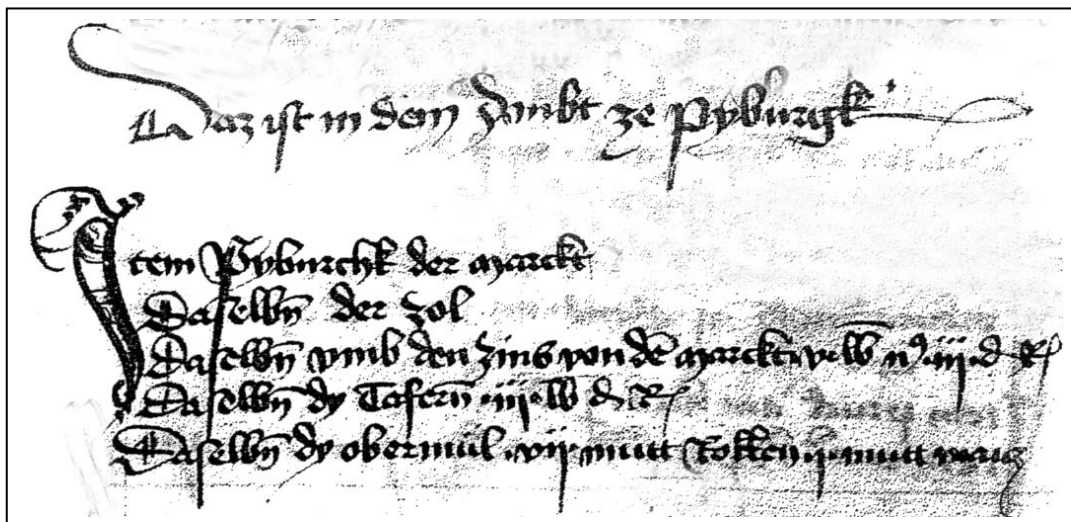 Daz ist in dem Ambt ze Pyburgk
Item Pyburchk der marckt
Daselbn der zol
Daselbn vmb den zins von dē marckt v lb iii d R
Daselbn dy Tafern iii lb d R
Daselbn dy obermül vii mutt Rokken ii mutt waitz